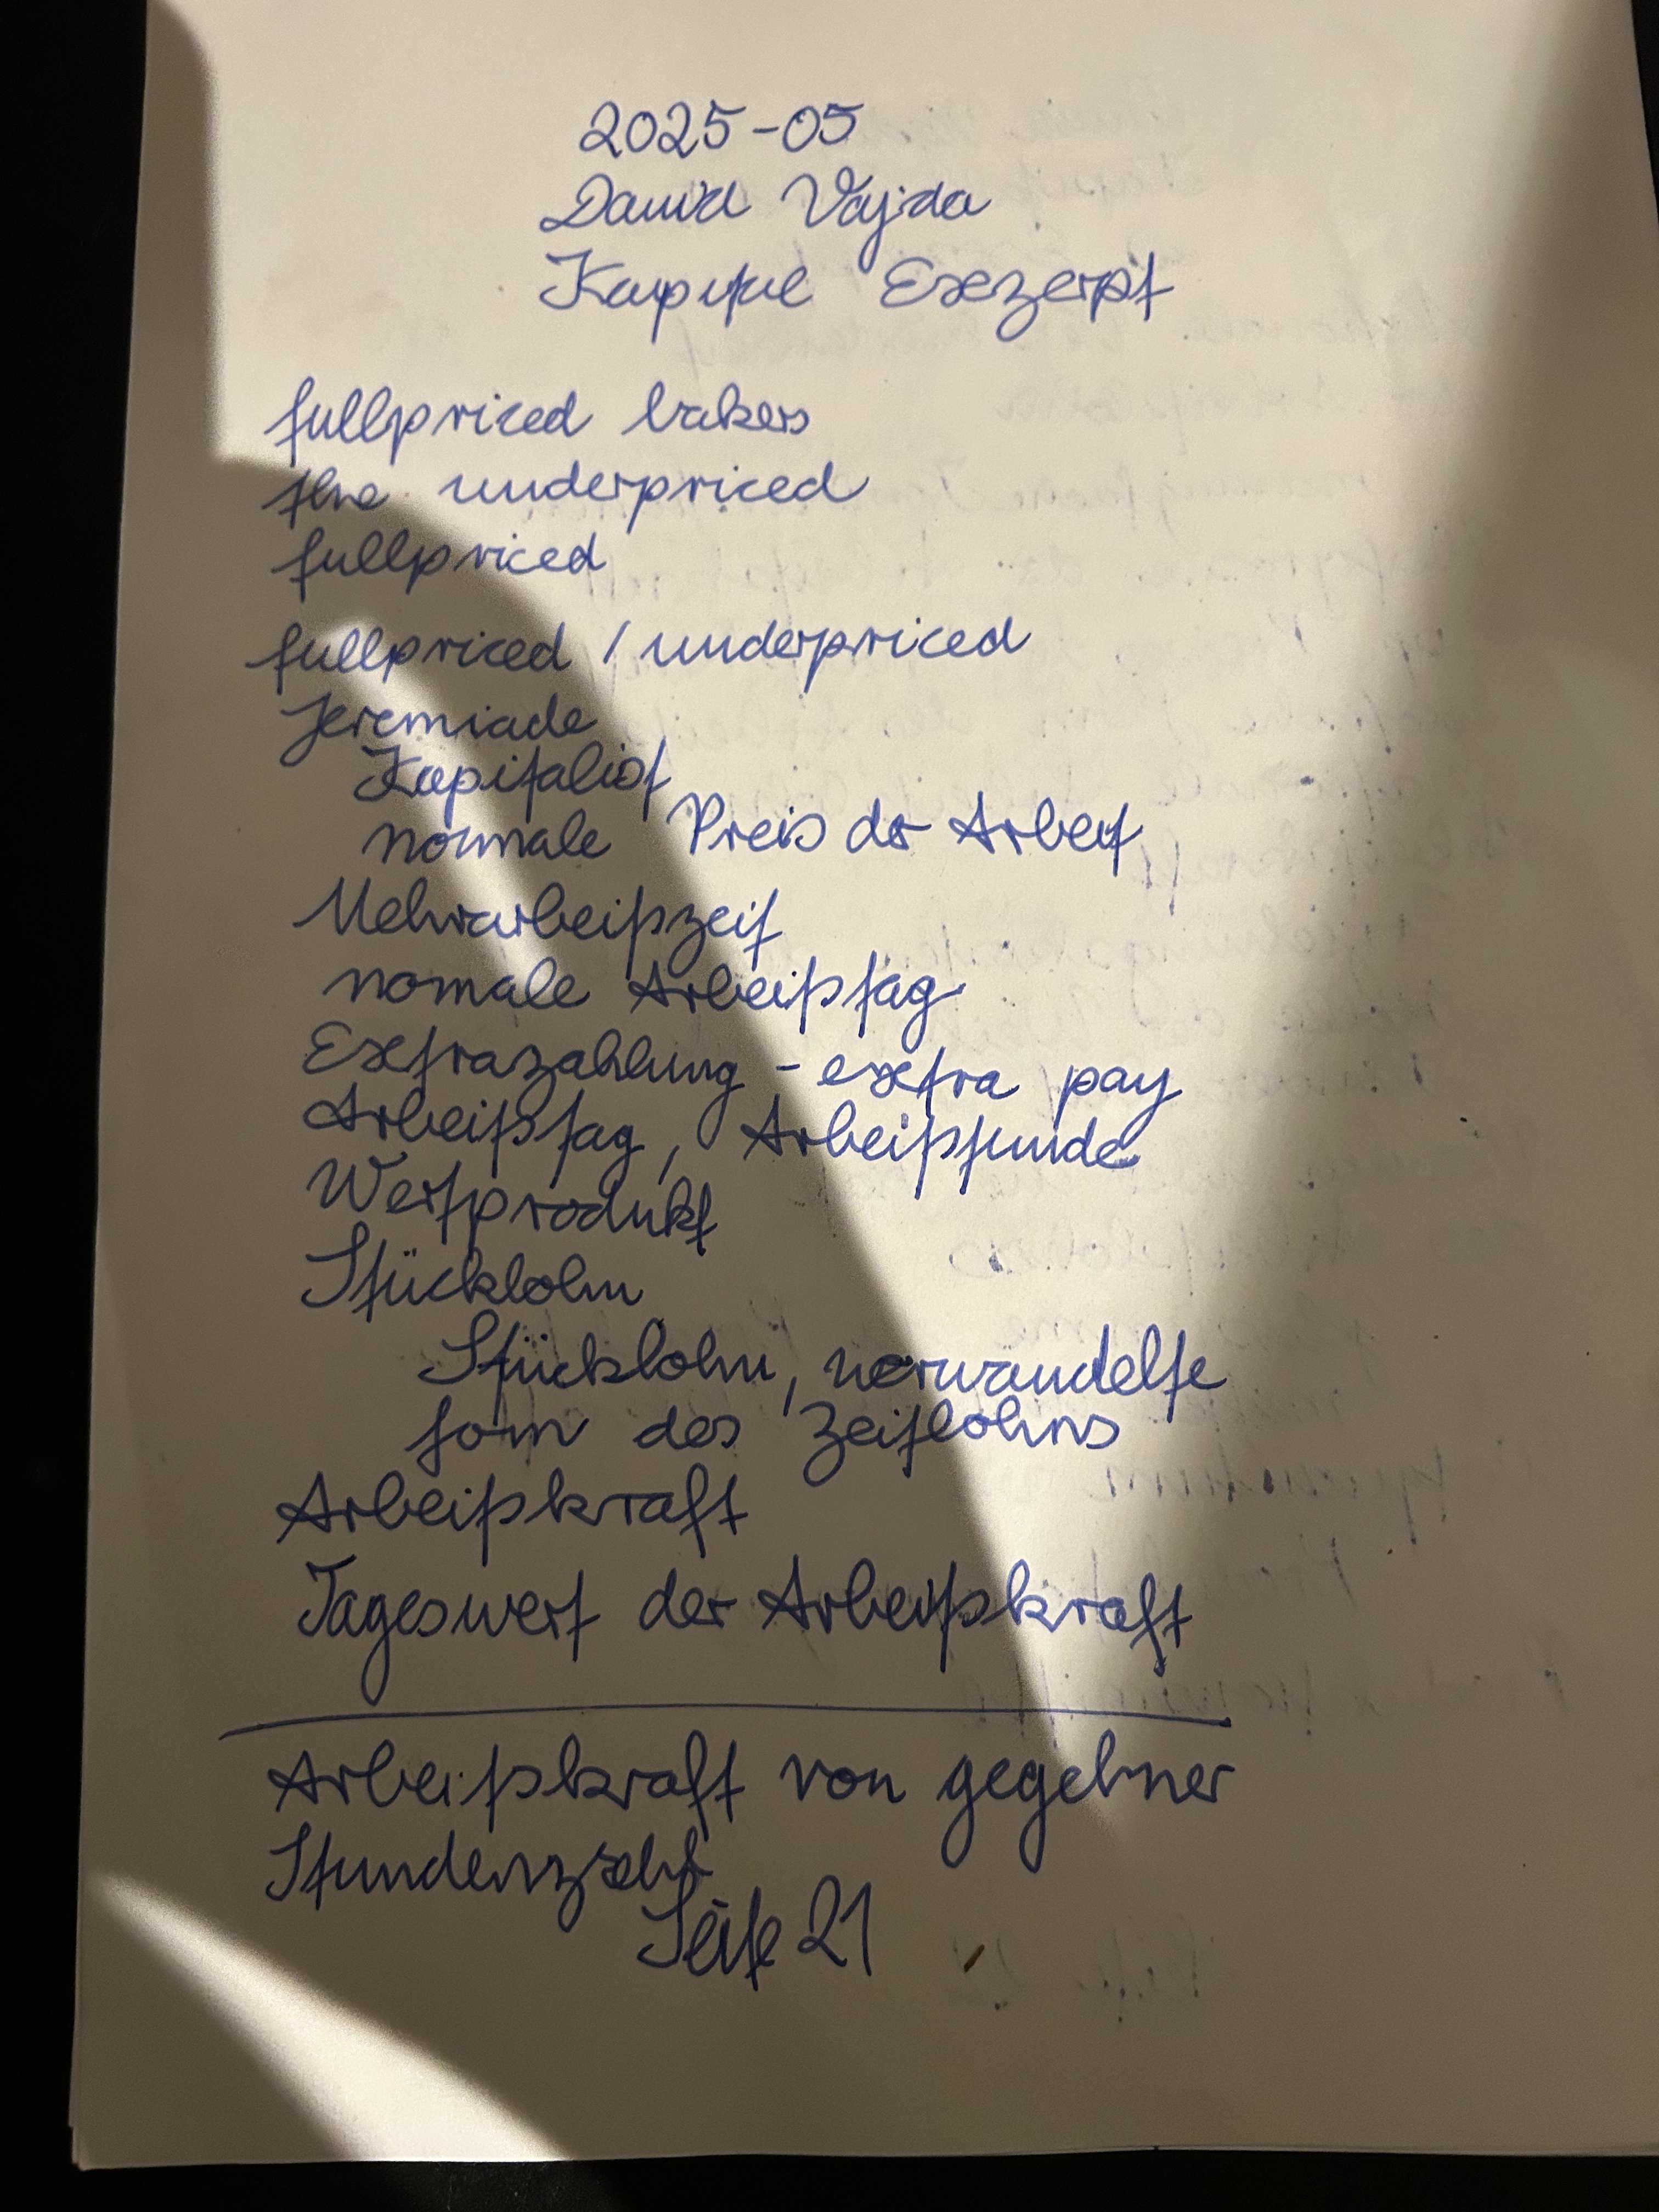 2025-05
David Vajda
Kapitel Exzerpt
fullpriced bakers
the underpriced
fullpriced
fullpriced / underpriced
Jeremiade
Kapitalist
normale Preis der Arbeit
Mehrarbeitszeit
normale Arbeitstag
Extrazahlung - extra pay
Arbeitstag, Arbeitsstunde
Wertprodukt
Stücklohn
Stücklohn, verwandelte
form des Zeitlohns
Arbeitskraft
Tageswert der Arbeitskraft
Arbeitskraft von gegebner
Stundenzahl
Seite 21